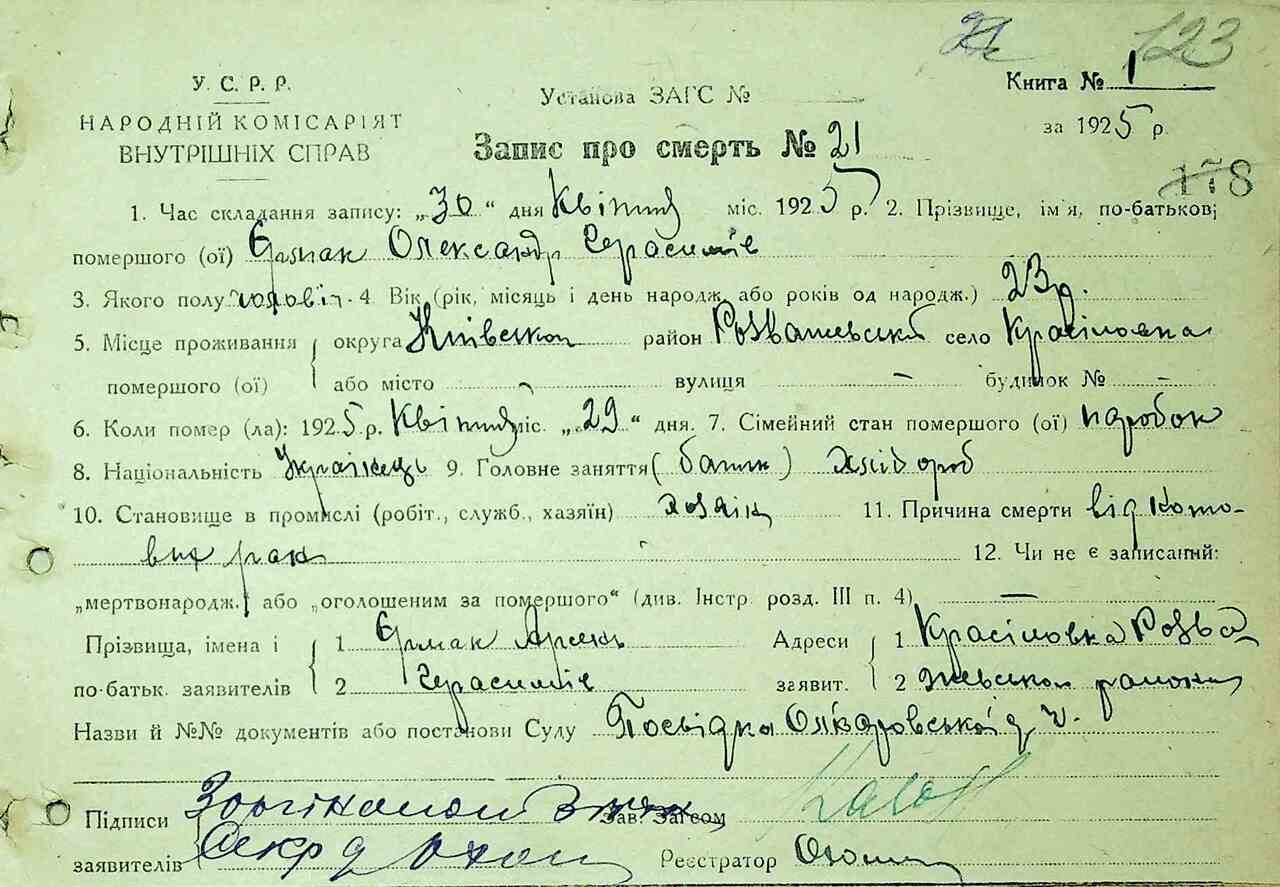 123
У. С. Р. Р.
НАРОДНІЙ КОМІСАРІЯТ
ВНУТРІШНІХ СПРАВ
Установа ЗАГС №
Книга № 1
за 1925 р.
Запис про смерть № 21
178
1. Час складання запису: „30“ дня Квітня міс. 1925 р. 2. Прізвище, ім'я, по-батькові
помершого (ої) Єрмак Олександр Герасимів
3. Якого полу чоловіч. 4. Вік (рік, місяць і день народж. або років од народж.) 23 р.
5. Місце проживання округа Київської район Розважевський село Красіловка
помершого (ої) або місто - вулиця - будинок № -
6. Коли помер (ла): 1925 р. Квітня міс. „29“ дня. 7. Сімейний стан помершого (ої) паробок
8. Національність Українець 9. Головне заняття (батьк) хлібороб
10. Становище в промислі (робіт., служб., хазяїн) хозяїн 11. Причина смерти від
рак 12. Чи не є записаний:
„мертвонародж.“ або „оголошеним за помершого“ (див. Інстр. розд. III п. 4) —
Прізвища, імена і 1 Єрмак Адреси 1 Красіловка Розва-
по-батьк. заявителів 2 Герасимів заявит. 2 жевського району
Назви й №№ документів або постанови Суду Посвідка
Підписи Зав. Загсом
заявителів Реєстратор